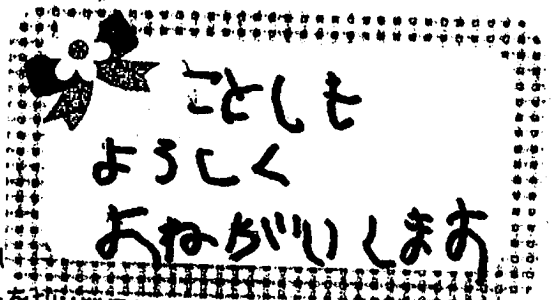 ことしも
よろしく
おねがいします